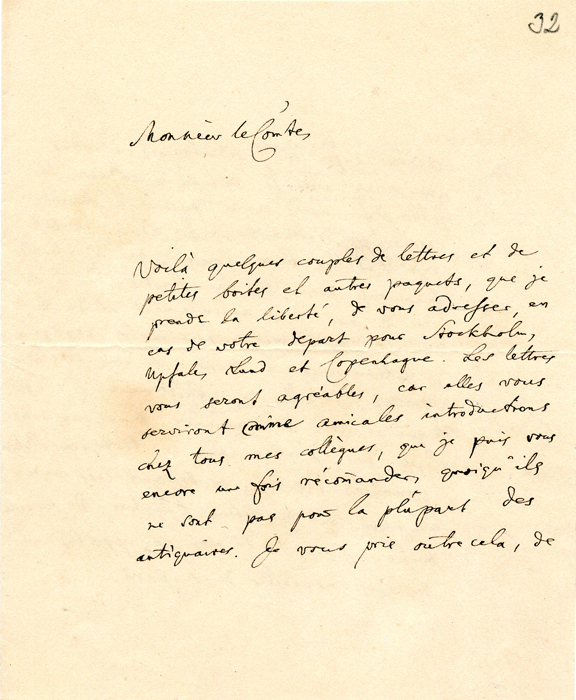 32
Monsieur le Comte,
Voilà quelques couples de lettres et de
petites boites et autres paquets, que je
prends la liberté, de vous adresser, en
cas de votre depart pour Stockholm,
Upsale, Lund et Copenhague. Les lettres
vous seront agréables, car elles vous
serviront comme amicales introductions
chez tous mes collègues, que je puis vous
encore une fois récom̄ander, quoiqu'ils
ne sont pas pour la plûpart des
antiquaires. Je vous prie outre cela, de